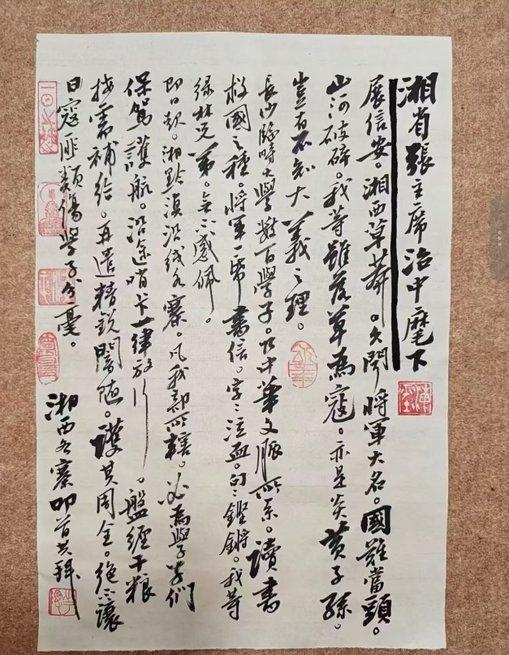 湘省張主席治中麾下
展信安。湘西草莽。久聞將軍大名。國難當頭。
山河破碎。我等雖落草為寇。亦是炎黃子孫。
豈有不知大義之理。
長沙臨時大學數百學子。乃中華文脈所系。讀書
救國之種。將軍一席書信。字字泣血。句句鏗鏘。我等
綠林兄弟。無不感佩。
即日起。湘黔滇沿线各寨。凡我部所轄。必為學子们
保駕護航。沿途哨卡一律放行。盤纏干粮
按需補给。再遣精銳闇随。護其周全。絕不讓
日寇匪類傷學子分毫。
湘西各寨叩首共拜